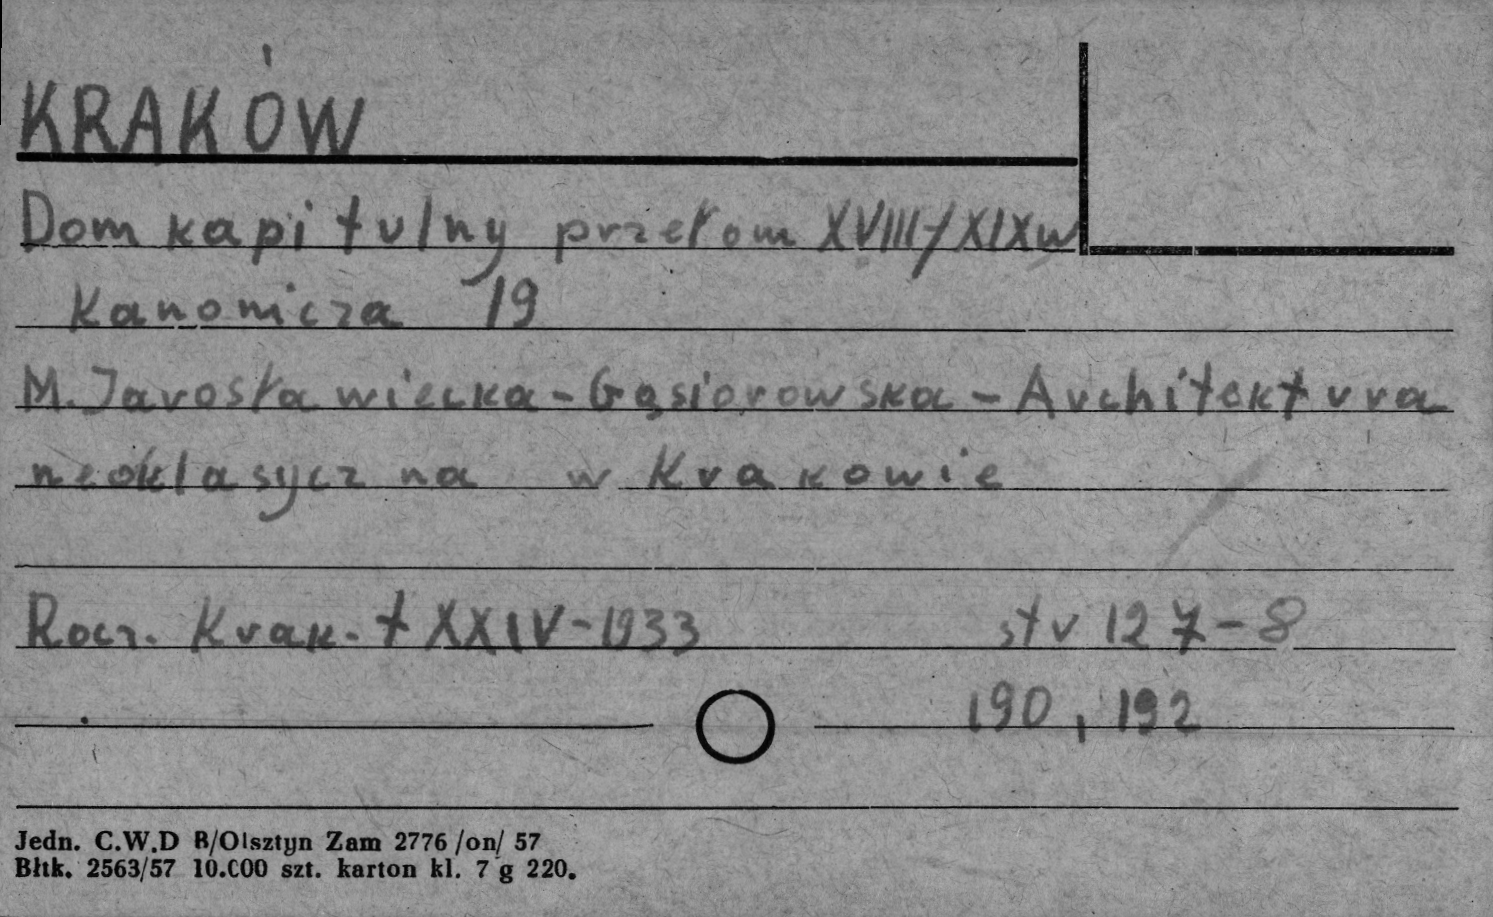 KRAKÓW
Dom kapitulny przełom XVIII/XIXw
Kanonicza 19
M. Jarosławiecka-Gąsiorowska - Architektura
neoklasyczna w Krakowie
Rocz. Krak. t XXIV-1933 str 127-8
190, 192
Jedn. C.W.D B/Olsztyn Zam 2776 /on/ 57
Błtk. 2563/57 10.000 szt. karton kl. 7 g 220.